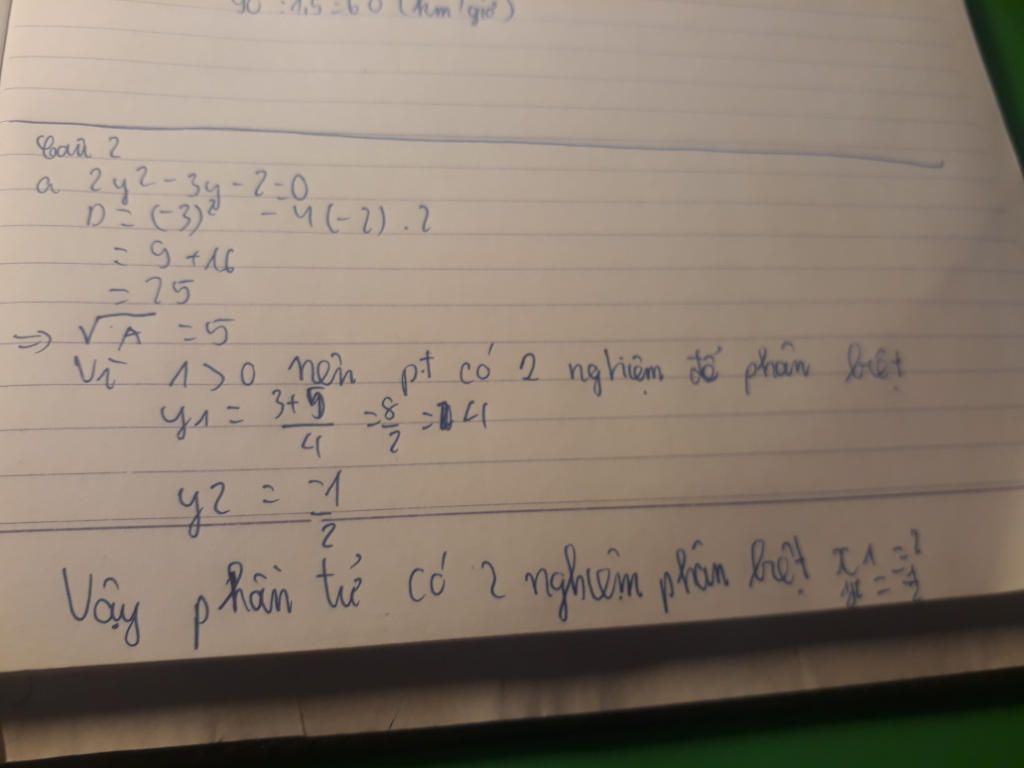 90 : 1,5 = 60 (km/giờ)
Bài 2
a 2y² - 3y - 2 = 0
D = (-3)² - 4(-2) . 2
= 9 + 16
= 25
=> √A = 5
Vì 1 > 0 nên pt có 2 nghiệm phân biệt
y1 = 3+5/4 = 8/2 = 4
y2 = -1/2
Vậy phần tử có 2 nghiệm phân biệt x1 = 2